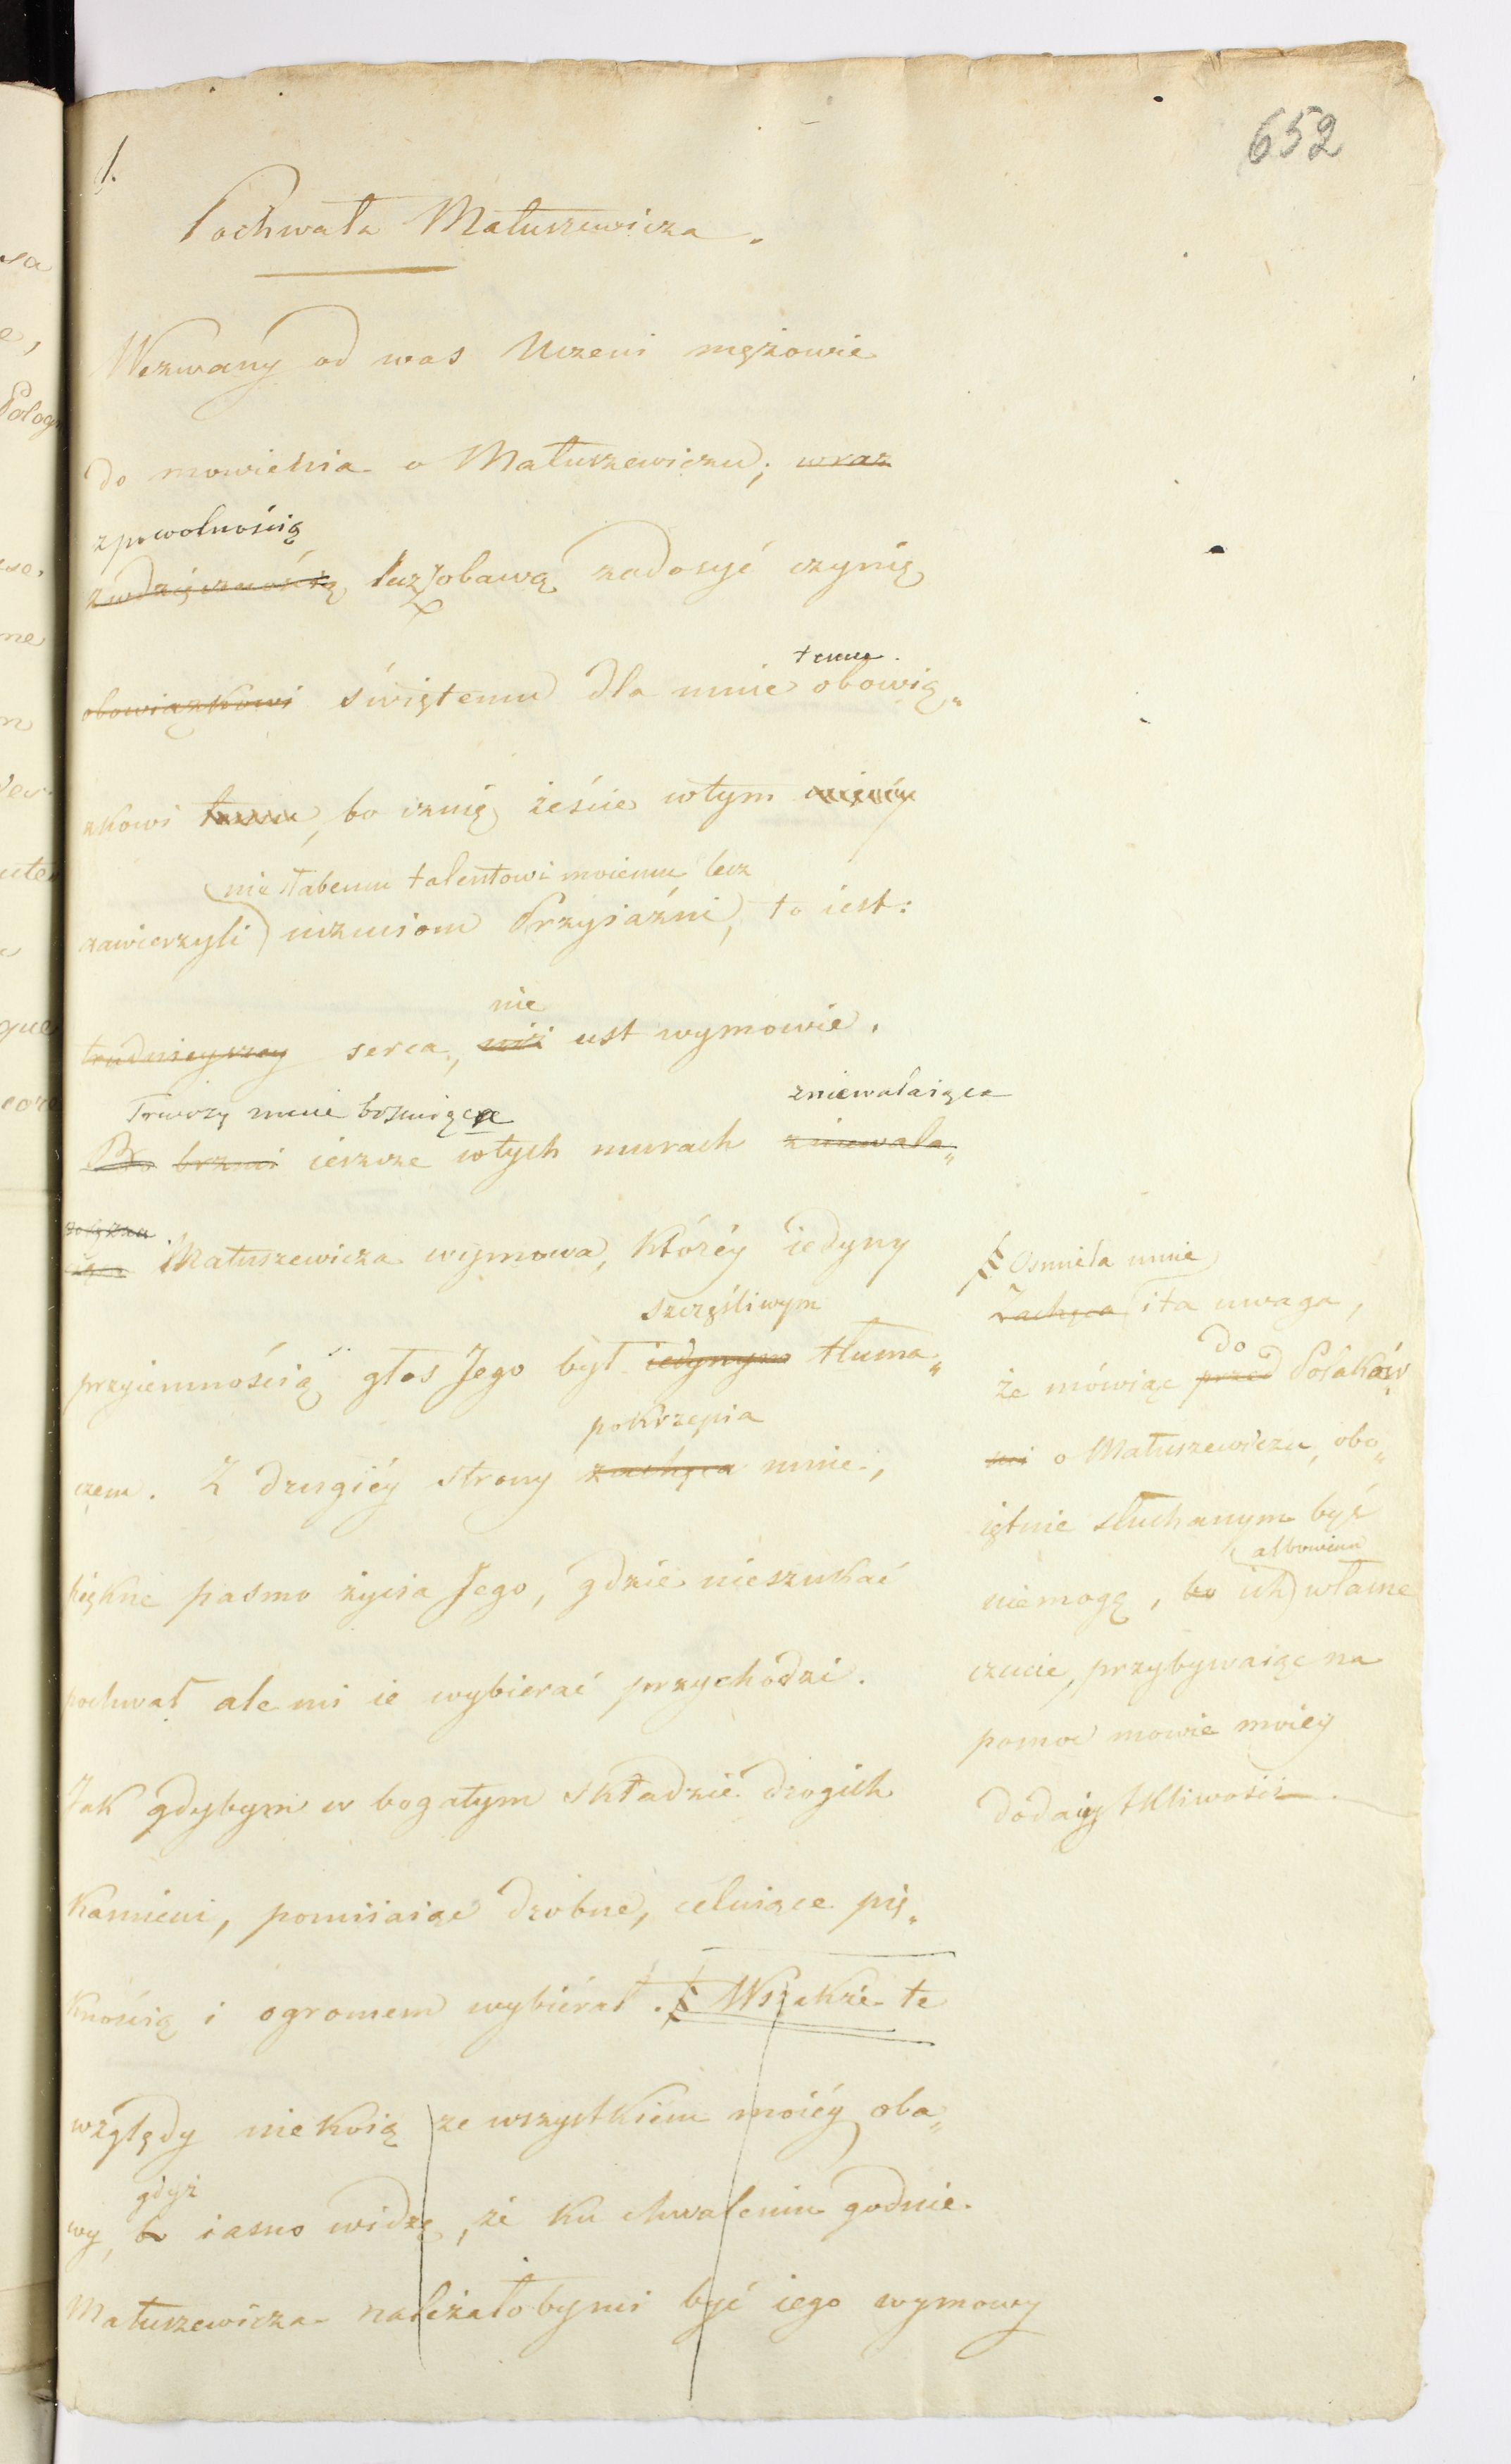 652
1.
Pochwała Matuszewicza.
Wezwany od was Uczeni mężowie
do mowienia o Matuszewiczu; wraz
zpowolnością
z wdzięcznością lecz z obawą zadosyć czynię
temu
obowiązkowi świętemu dla mnie obowią„
zkowi temu, bo czuię żeście wtym
nie słabemu talentowi moiemu lecz
zawierzyli uczuciom Przyiaźni, to iest:
nie
trudnieyszey serca, niż ust wymowie.
Trwoży mnie brzmiąca
zniewalaiąca
Bo brzmi ieszcze wtych murach zniewala„
iąca Matuszewicza wymowa, któréy iedyny
szczęśliwym
przyiemnością głos Jego był iedynym tłuma„
pokrzepia
czem. Z drugiéy strony zachęca mnie,
piękne pasmo życia Jego, gdzie nieszukać
pochwał ale mi ie wybierać przychodzi.
Jak gdybym w bogatym składzie drogich
Kamieni, pomiiaiąc drobne, celuiące pię„
knością i ogromem wybiérał. § Wszakże te
względy nie koią ze wszystkiem moiéy oba„
gdyż
wy, bo iasno widzę, że ku chwaleniu godnie
Matuszewicza należałobymi być iego wymowy
§ Osmiela mnie
Zachęca i ta uwaga,
do
że mówiąc przed Polaków
mi o Matuszewiczu, obo„
iętnie słuchanym być
albowiem
niemogę, bo ich własne
czucie, przybywaiąc na
pomoc mowie moiey
doda iey tkliwości.